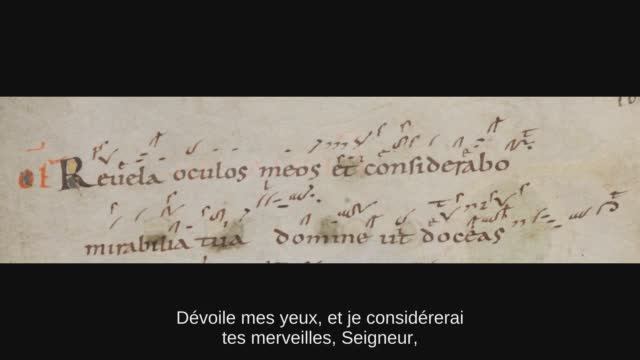 OF Revela oculos meos et considerabo
mirabilia tua domine ut doceas
Dévoile mes yeux, et je considérerai
tes merveilles, Seigneur,